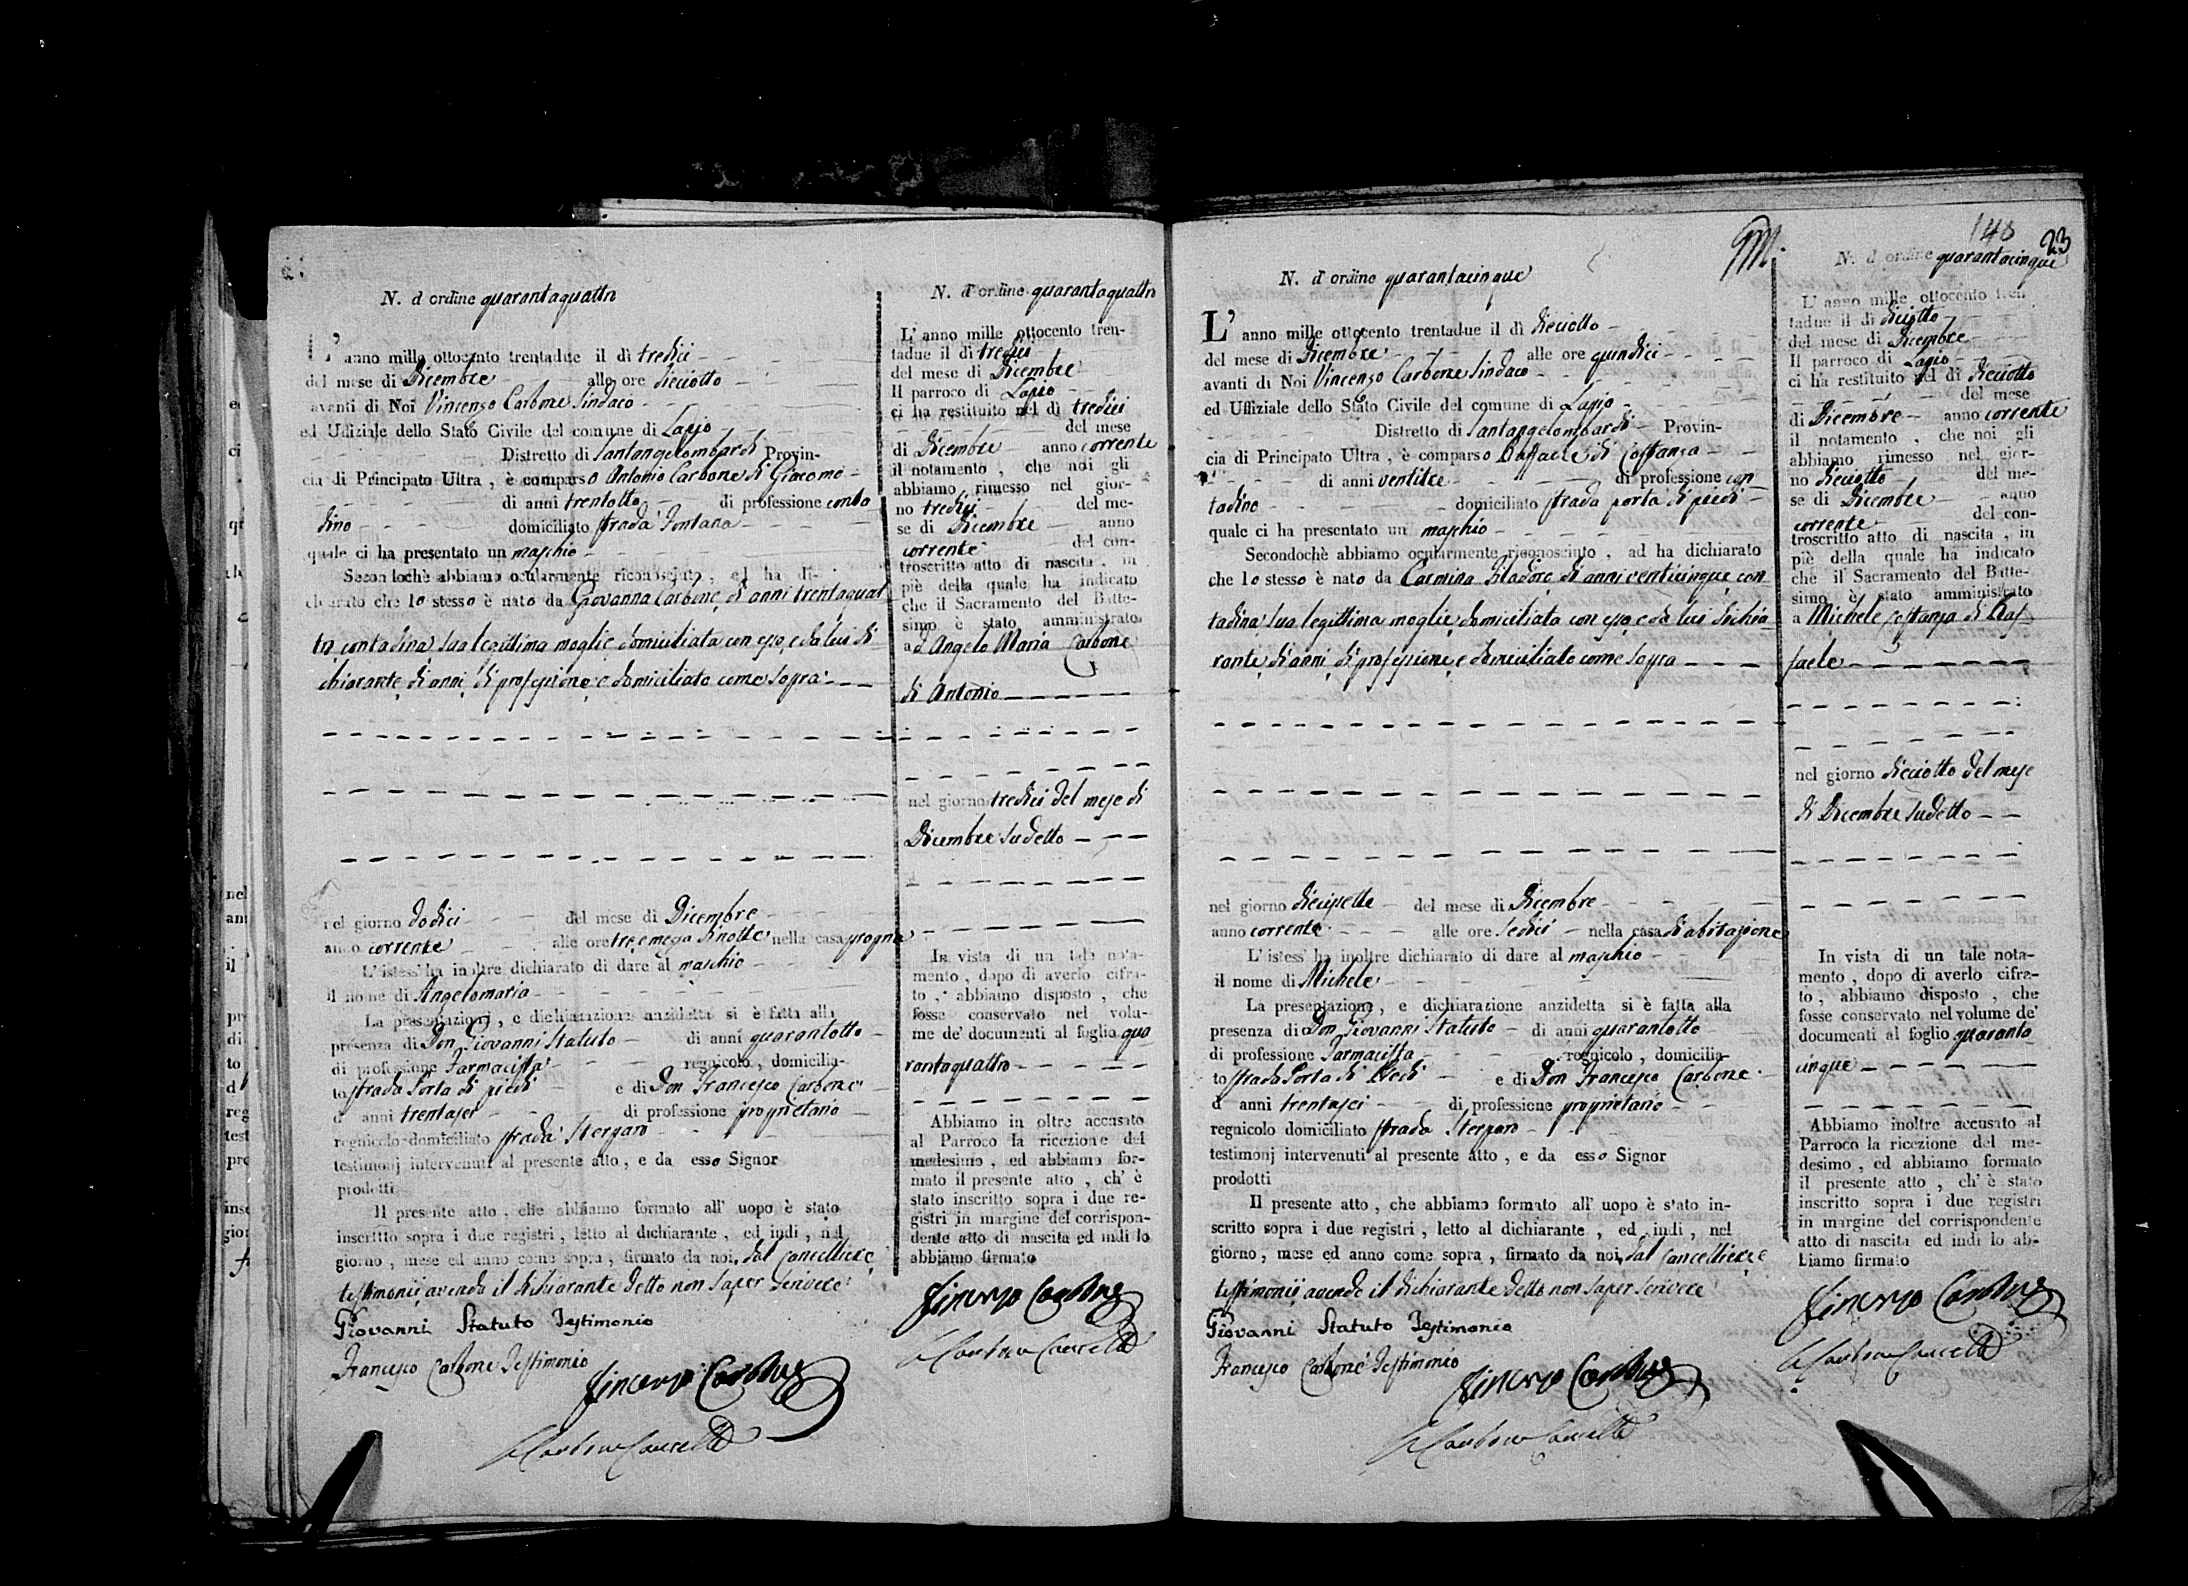 N. d'ordine quarantaquattro
L'anno mille ottocento trentadue il dì tredici
del mese di Dicembre alle ore dieciotto
avanti di Noi Vincenzo Carbone Sindaco
ed Uffiziale dello Stato Civile del comune di Lapio
Distretto di Santangelombardi Provin-
cia di Principato Ultra, è comparso Antonio Carbone di Giacomo
di anni trentotto di professione conta
dino domiciliato strada Fontana
quale ci ha presentato un maschio
Secondochè abbiamo ocularmente riconosciuto, ed ha di-
chiarato che lo stesso è nato da Giovanna Carbone di anni trentaquat
tro contadina sua legittima moglie domiciliata con esso, e da lui di
chiarante di anni, di professione e domiciliato come sopra
nel giorno dodici del mese di Dicembre
anno corrente alle ore tre e mezza di notte nella casa propria
L'istess' ha inoltre dichiarato di dare al maschio
il nome di Angelomaria
La presentazione, e dichiarazione anzidetta si è fatta alla
presenza di Don Giovanni Statuto di anni quarantotto
di professione Farmacista regnicolo, domicilia-
to strada Porta di piedi e di Don Francesco Carbone
d' anni trentasei di professione proprietario
regnicolo domiciliato strada Sterparo
testimonj intervenuti al presente atto, e da esso Signor
prodotti
Il presente atto, che abbiamo formato all' uopo è stato
inscritto sopra i due registri, letto al dichiarante, ed indi, nel
giorno, mese ed anno come sopra, firmato da noi, dal Cancelliere, e
testimonii avendo il dichiarante detto non saper scrivere
Giovanni Statuto Testimonio
Francesco Carbone Testimonio
Vincenzo Carbone
Carbone Cancell
N. d'ordine quarantaquattro
L'anno mille ottocento tren-
tadue il dì tredici
del mese di Dicembre
Il parroco di Lapio
ci ha restituito nel dì tredici
del mese
di Dicembre anno corrente
il notamento, che noi gli
abbiamo rimesso nel gior-
no tredici del me-
se di Dicembre anno
corrente del con-
troscritto atto di nascita, in
piè della quale ha indicato
che il Sacramento del Batte-
simo è stato amministrato
ad Angelo Maria Carbone
di Antonio
nel giorno tredici del mese di
Dicembre sudetto
In vista di un tale nota-
mento, dopo di averlo cifra-
to, abbiamo disposto, che
fosse conservato nel volu-
me de' documenti al foglio qua
rantaquattro
Abbiamo in oltre accusato
al Parroco la ricezione del
medesimo, ed abbiamo for-
mato il presente atto, ch' è
stato inscritto sopra i due re-
gistri in margine del corrispon-
dente atto di nascita ed indi lo
abbiamo firmato
Vincenzo Carbone
Carbone Cancell
N. d'ordine quarantacinque
L'anno mille ottocento trentadue il dì dieciotto
del mese di Dicembre alle ore quindici
avanti di Noi Vincenzo Carbone Sindaco
ed Uffiziale dello Stato Civile del comune di Lapio
Distretto di Santangelombardi Provin-
cia di Principato Ultra, è comparso Raffaele di Costanza
di anni ventitre di professione con
tadino domiciliato strada porta di piedi
quale ci ha presentato un maschio
Secondochè abbiamo ocularmente riconosciuto, ad ha dichiarato
che lo stesso è nato da Carmina Filadoro di anni venticinque con
tadina, sua legittima moglie, domiciliata con esso, e da lui dichia
rante, di anni, di professione, e domiciliato come sopra
nel giorno diecisette del mese di Dicembre
anno corrente alle ore sedici nella casa di abitazione
L'istess' ha inoltre dichiarato di dare al maschio
il nome di Michele
La presentazione, e dichiarazione anzidetta si è fatta alla
presenza di Don Giovanni Statuto di anni quarantotto
di professione Farmacista regnicolo, domicilia-
to strada Porta di Piedi e di Don Francesco Carbone
d' anni trentasei di professione proprietario
regnicolo domiciliato strada Sterparo
testimonj intervenuti al presente atto, e da esso Signor
prodotti
Il presente atto, che abbiamo formato all' uopo è stato in-
scritto sopra i due registri, letto al dichiarante, ed indi, nel
giorno, mese ed anno come sopra, firmato da noi, dal Cancelliere e
testimonii avendo il dichiarante detto non saper scrivere
Giovanni Statuto Testimonio
Francesco Carbone Testimonio
Vincenzo Carbone
Carbone Cancell
23
N. d'ordine quarantacinque
L'anno mille ottocento tren-
tadue il dì dieciotto
del mese di Dicembre
Il parroco di Lapio
ci ha restituito nel dì dieciotto
del mese
di Dicembre anno corrente
il notamento, che noi gli
abbiamo rimesso nel gior-
no dieciotto del me-
se di Dicembre anno
corrente del con-
troscritto atto di nascita, in
piè della quale ha indicato
che il Sacramento del Batte-
simo è stato amministrato
a Michele Costanza di Raf
faele
nel giorno dieciotto del mese
di Dicembre sudetto
In vista di un tale nota-
mento, dopo di averlo cifra-
to, abbiamo disposto, che
fosse conservato nel volume de'
documenti al foglio quaranta
cinque
Abbiamo inoltre accusato al
Parroco la ricezione del me-
desimo, ed abbiamo formato
il presente atto, ch' è stato
inscritto sopra i due registri
in margine del corrispondente
atto di nascita ed indi lo ab-
biamo firmato
Vincenzo Carbone
Carbone Cancell